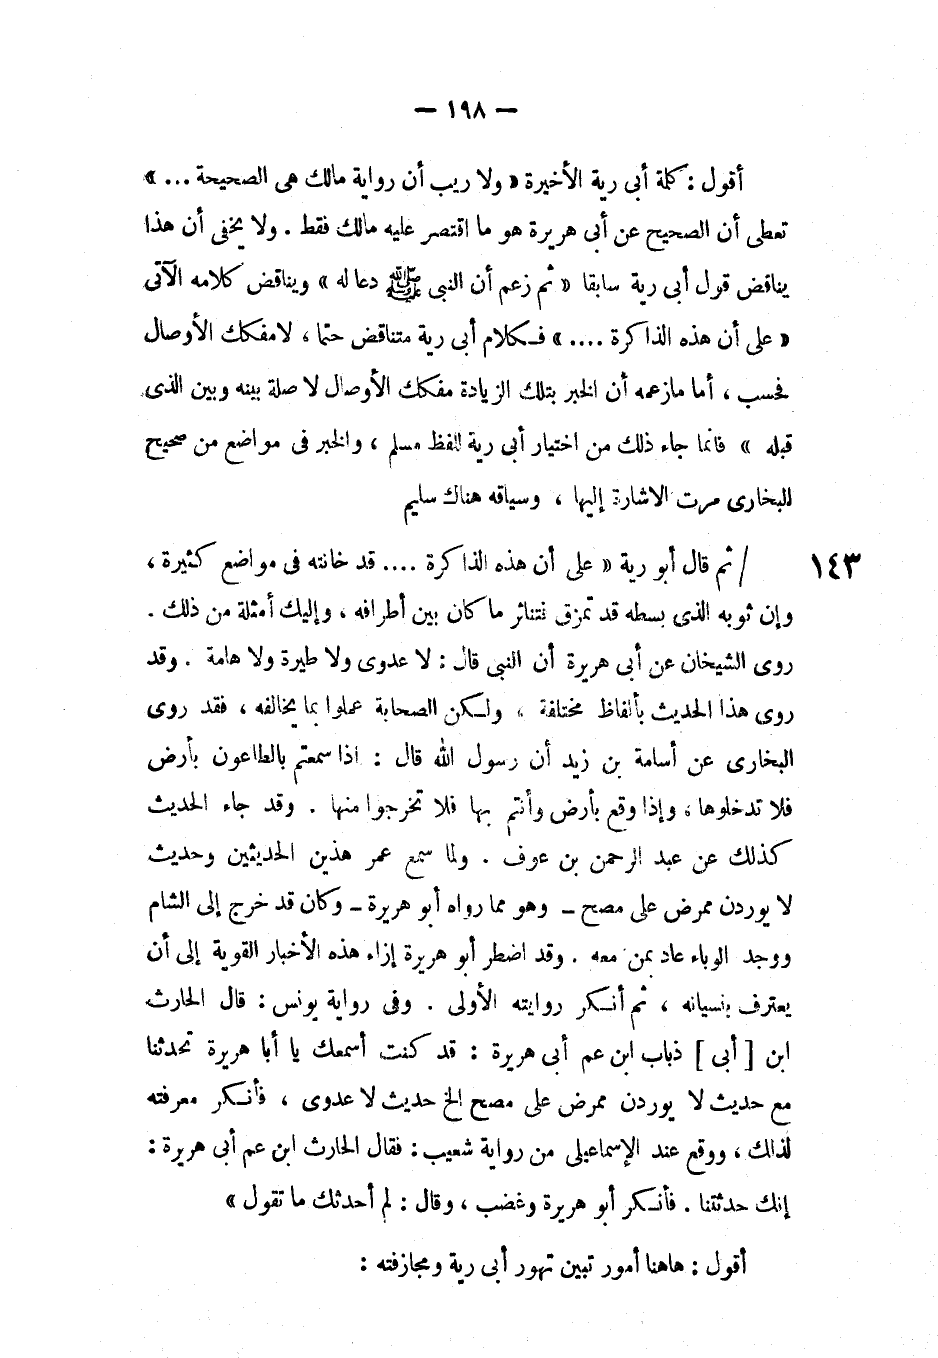 — ١٩٨ —
أقول : كلمة أبى رية الأخيرة « ولا ريب أن رواية مالك هى الصحيحة ... »
تعطى أن الصحيح عن أبى هريرة هو ما اقتصر عليه مالك فقط . ولا يخفى أن هذا
يناقض قول أبى رية سابقا « ثم زعم أن النبى ﷺ دعا له » ويناقض كلامه الآتى
« على أن هذه الذاكرة .... » فـكلام أبى رية متناقض حتما ، لا مفكك الأوصال
فحسب ، أما مازعمه أن الخبر بتلك الزيادة مفكك الأوصال لا صلة بينه وبين الذى
قبله » فانما جاء ذلك من اختيار أبى رية للفظ مسلم ، والخبر فى مواضع من صحيح
البخارى مرت الاشارة إليها ، وسياقه هناك سليم
١٤٣ / ثم قال أبو رية « على أن هذه الذاكرة .... قد خانته فى مواضع كثيرة ،
وإن ثوبه الذى بسطه قد تمزق فتناثر ما كان بين أطرافه ، وإليك أمثلة من ذلك .
روى الشيخان عن أبى هريرة أن النبى قال : لا عدوى ولا طيرة ولا هامة . وقد
روى هذا الحديث بألفاظ مختلفة ، ولـكن الصحابة عملوا بما يخالفه ، فقد روى
البخارى عن أسامة بن زيد أن رسول الله قال : اذا سمعتم بالطاعون بأرض
فلا تدخلوها ، وإذا وقع بأرض وأنتم بها فلا تخرجوا منها . وقد جاء الحديث
كذلك عن عبد الرحمن بن عوف . ولما سمع عمر هذين الحديثين وحديث
لا يوردن ممرض على مصح – وهو مما رواه أبو هريرة – وكان قد خرج إلى الشام
ووجد الوباء عاد بمن معه . وقد اضطر أبو هريرة إزاء هذه الأخبار القوية إلى أن
يعترف بنسيانه ، ثم أنـكر روايته الأولى . وفى رواية يونس : قال الحارث
ابن [ أبى ] ذباب ابن عم أبى هريرة : قد كنت أسمعك يا أبا هريرة تحدثنا
مع حديث لا يوردن ممرض على مصح الخ حديث لا عدوى ، فأنـكر معرفته
لذلك ، ووقع عند الإسماعيلى من رواية شعيب : فقال الحارث ابن عم أبى هريرة :
إنك حدثتنا . فأنـكر أبو هريرة وغضب ، وقال : لم أحدثك ما تقول »
أقول : هاهنا أمور تبين تهور أبى رية ومجازفته :